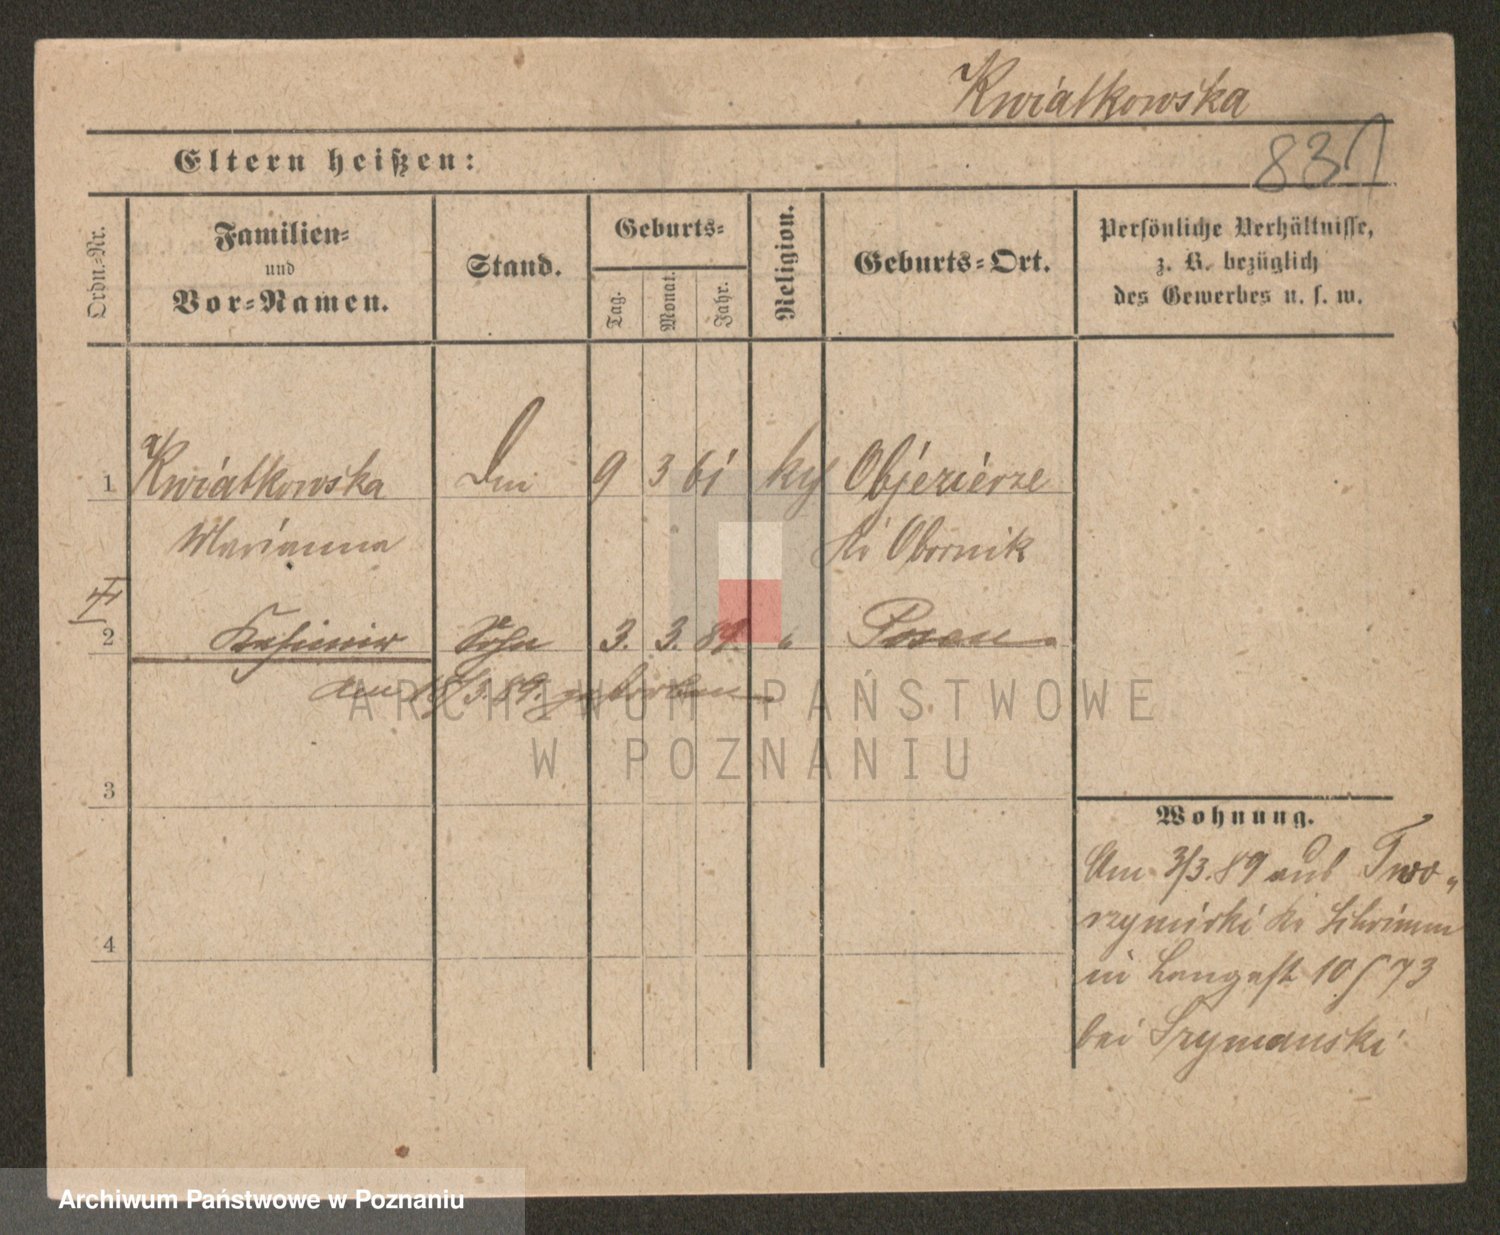 Kwiatkowska
837
Eltern heißen:
Ordn.-Nr.
Familien-
und
Vor-Namen.
Stand.
Geburts-
Tag.
Monat.
Jahr.
Religion.
Geburts-Ort.
Persönliche Verhältnisse,
z. B. bezüglich
des Gewerbes u. s. w.
1 Kwiatkowska 9 3 61 Objezierze
Marianna Obornik
2 Kasimir Sohn 3. 3. 89. " Posen
den 18/3. 89. gestorben
3
4
Wohnung.
Am 3/3. 89 aus Two-
rzymirki Kr Schrimm
in Langestr 10
bei Szymanski
ARCHIWUM PAŃSTWOWE
W POZNANIU
Archiwum Państwowe w Poznaniu